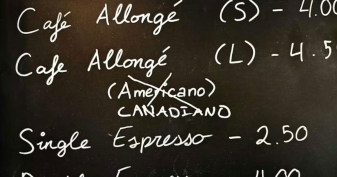 Café Allongé (S) - 4.00
Cafe Allongé (L) - 4.5
(Americano)
CANADIANO
Single Espresso - 2.50